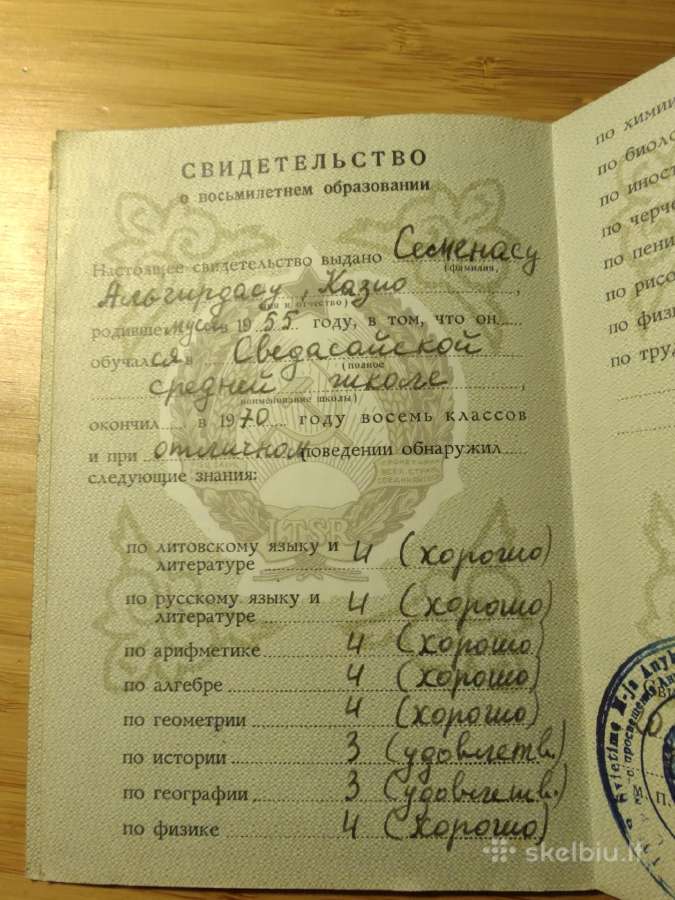 СВИДЕТЕЛЬСТВО
о восьмилетнем образовании
Настоящее свидетельство выдано Семенасу
(фамилия,
Альгирдасу, Казио
имя и отчество)
родившемуся в 1955 году, в том, что он
обучался в Сведасайской
(полное
средней школе,
наименование школы)
окончил в 1970 году восемь классов
и при отличном поведении обнаружил
следующие знания:
LTSR
по литовскому языку и
литературе 4 (хорошо)
по русскому языку и
литературе 4 (хорошо)
по арифметике 4 (хорошо)
по алгебре 4 (хорошо)
по геометрии 4 (хорошо)
по истории 3 (удовлетв.)
по географии 3 (удовлетв.)
по физике 4 (хорошо)
по химии
по биоло
по иност
по черче
по пени
по рисо
по физи
по труд
П.
skelbiu.lt